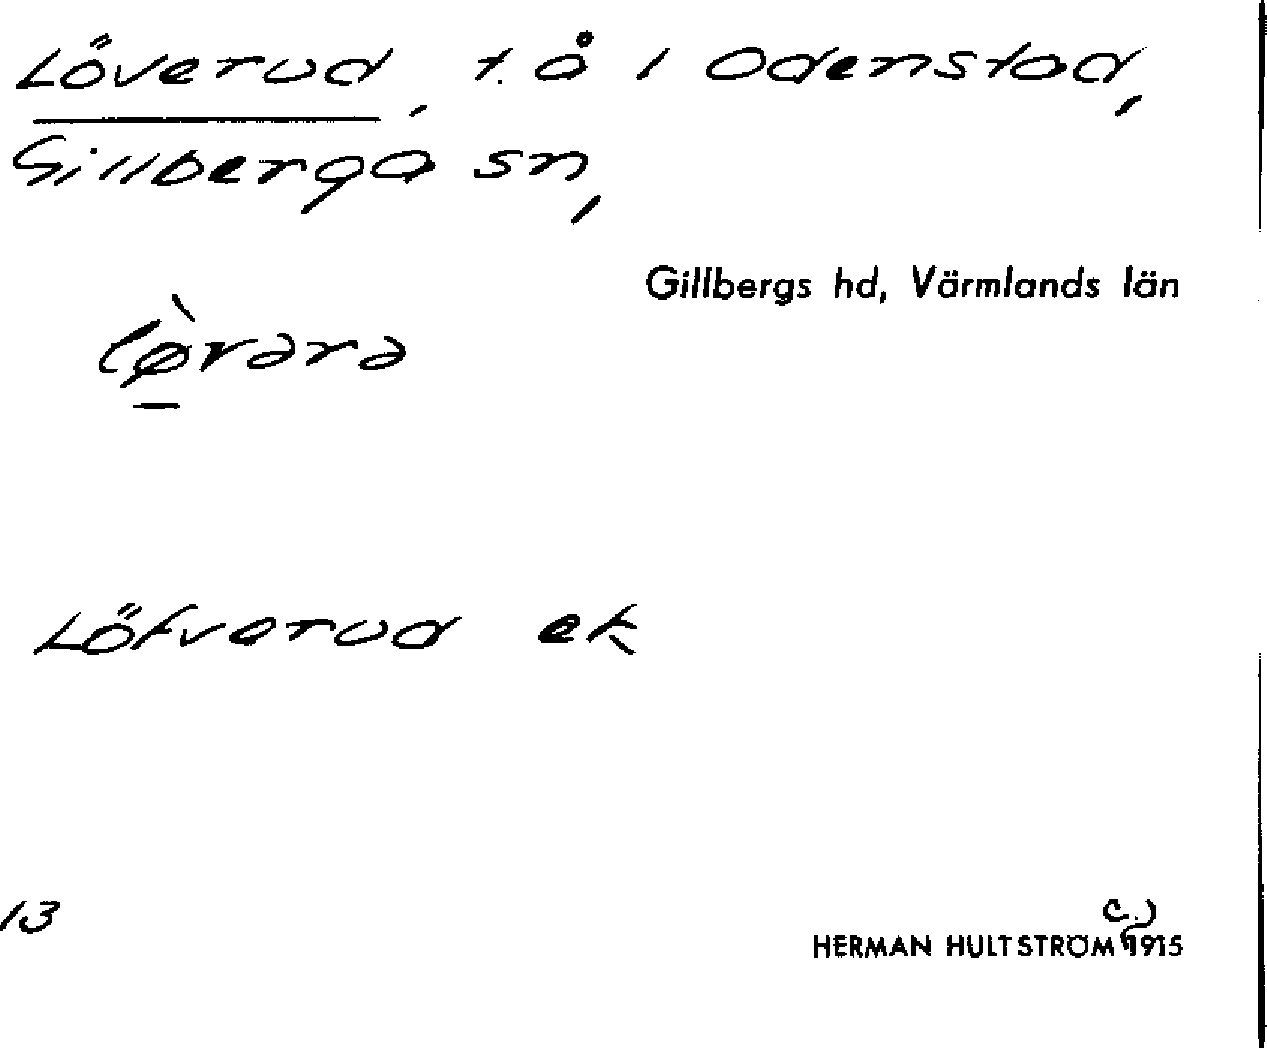 Löverud, t. å i Odenstad,
Gillberga sn,
Gillbergs hd, Värmlands län
lø̠̀vərə
Löfverud ek
13
HERMAN HULTSTRÖM (c.) 1915